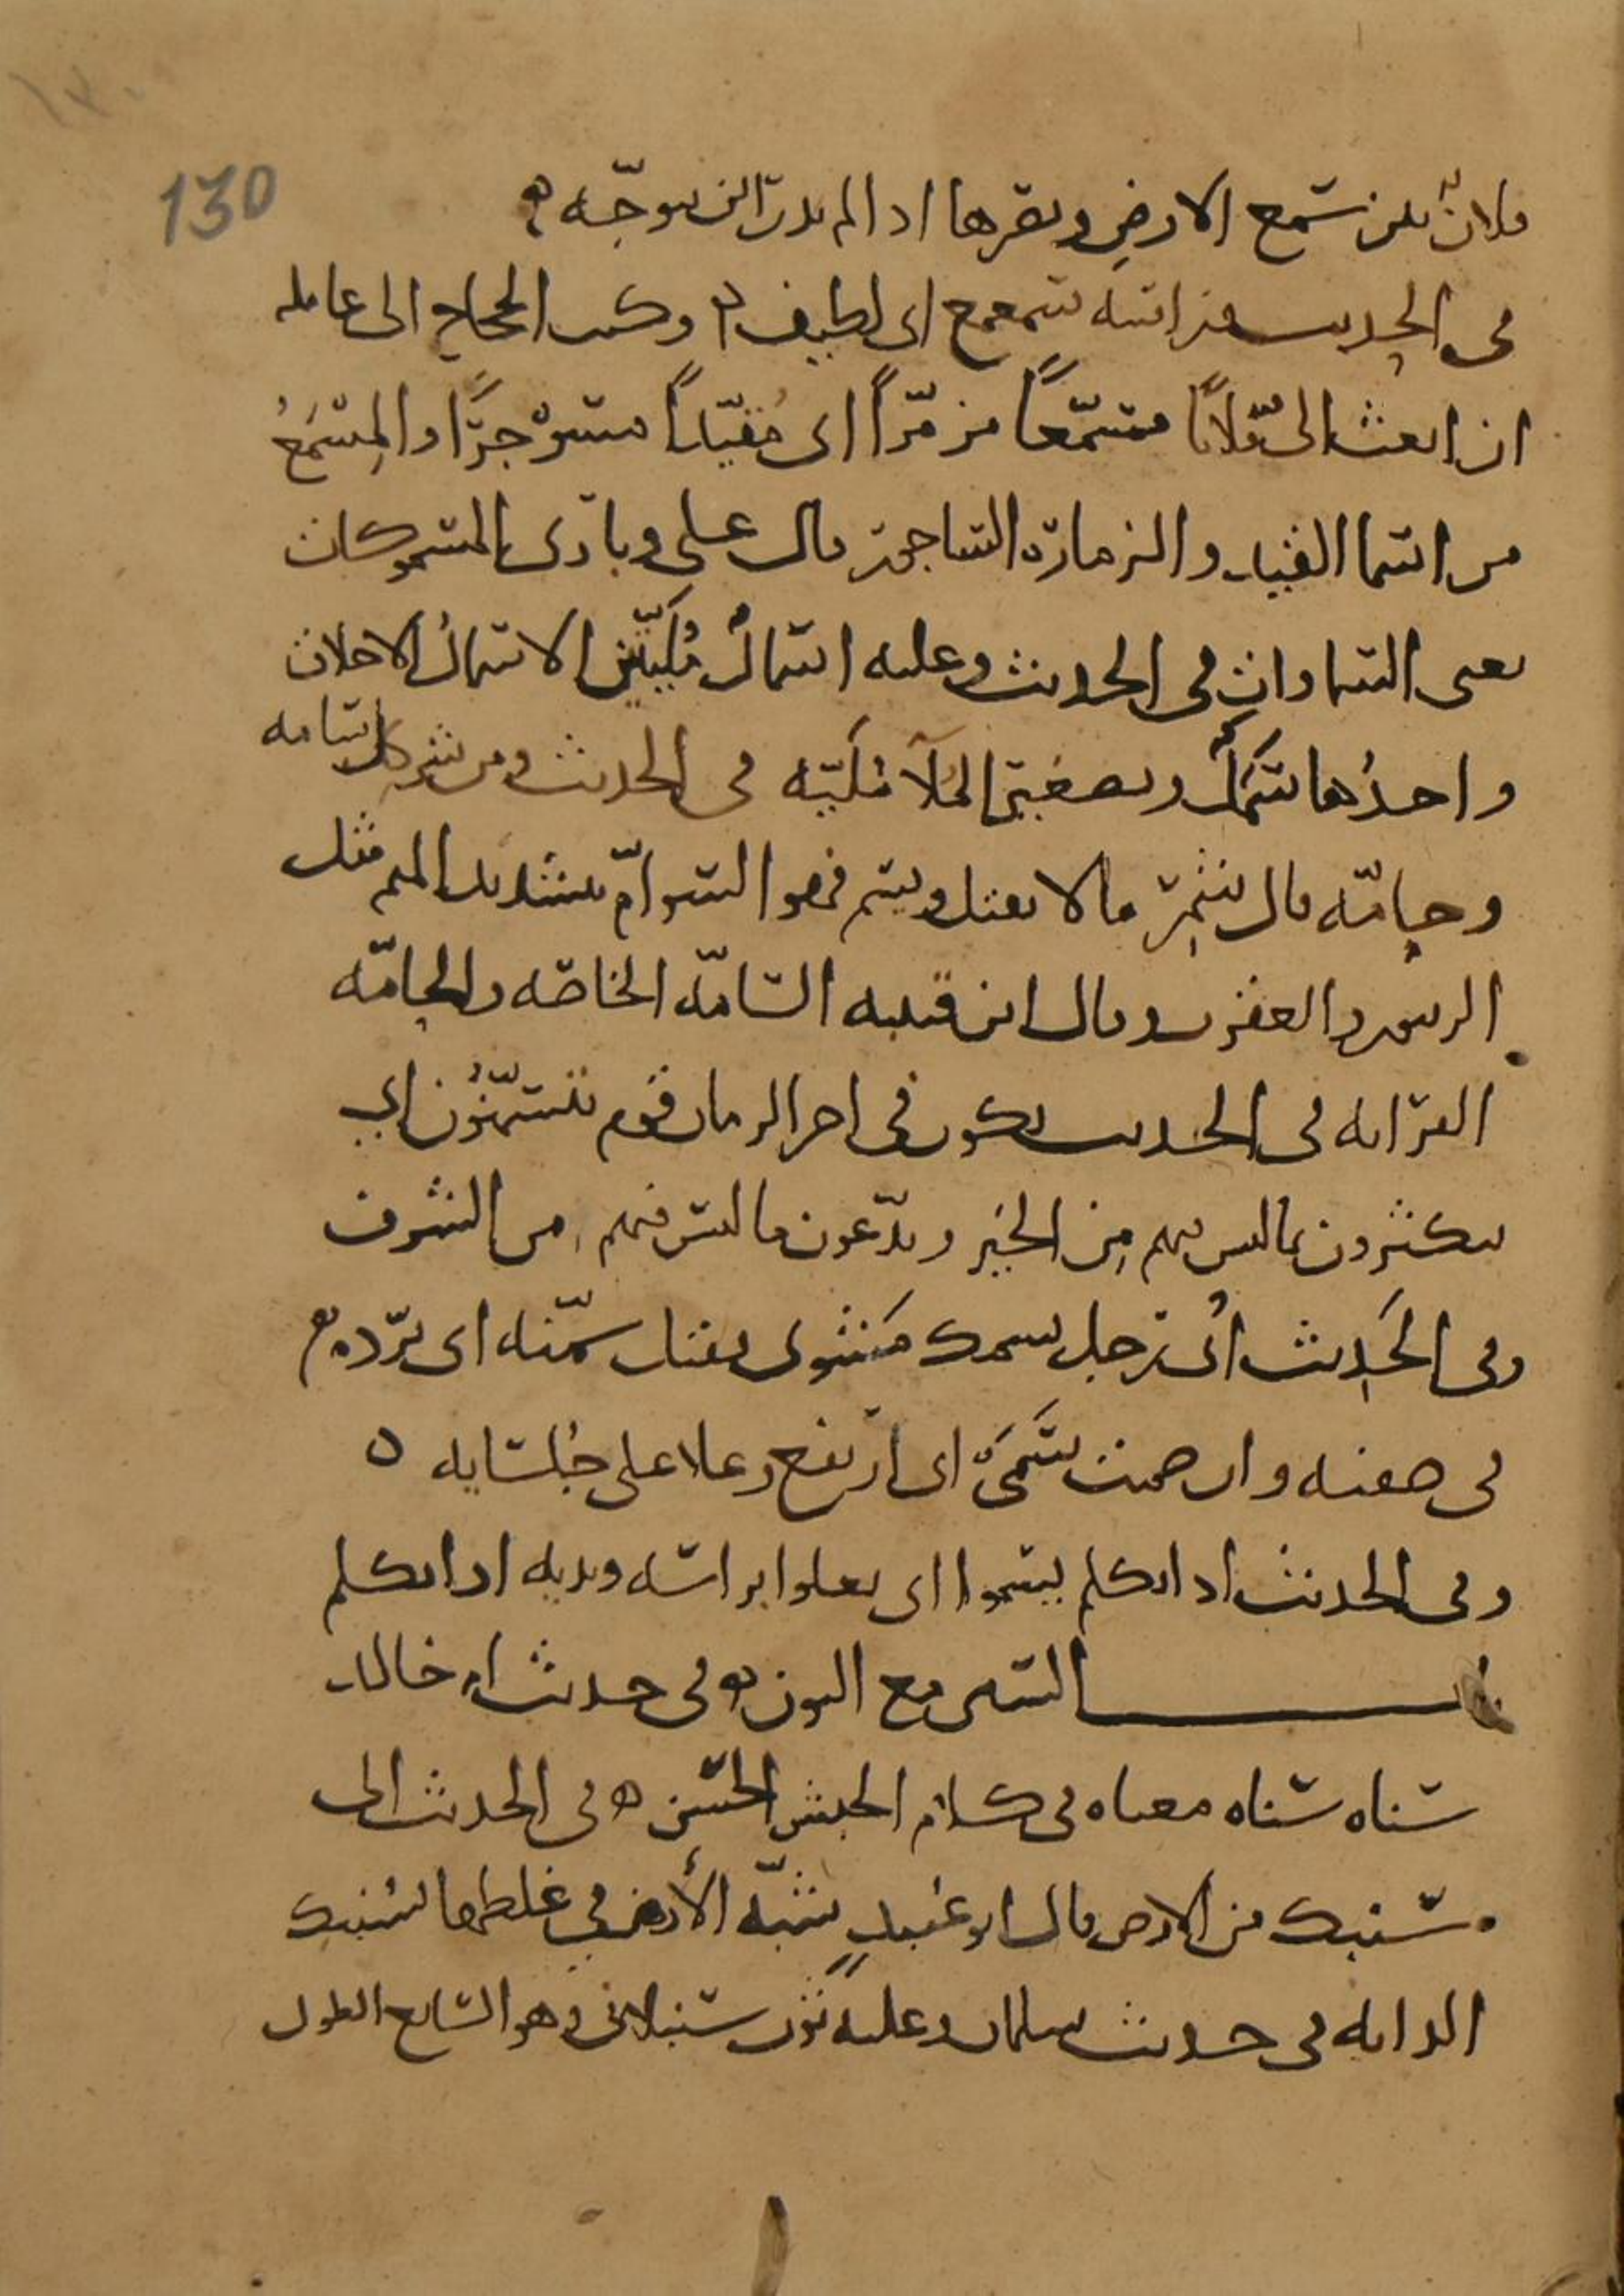 130
فلانٌ بين سمع الارضِ وبصرها اذا لم يدر اين يتوجّه ه
في الحديث من راسه سمعمع اي لطيف ه وكتب الحجاج الى عامله
ان ابعث الىّ فلانًا مسمّعًا مزمّرًا اى مُقيّدًا مسوجرًا والمِسْمَعُ
من اسما القيد والزمارة الساجور قال علي وبارى المسموكات
يعني السماوات في الحديث وعليه اسمالُ مُليّتين الاسمالُ الاخلاق
واحدُها سَمَلٌ وتصغير المُلآ مُليّه في الحديث ومن شر كل سامه
وحامّه قال شمر ما لا يقتل ويسم فهو السوامّ بتشديد الميم مثل
الزنبور والعقرب وقال ابن قتيبه السامّه الخاصّه والحامّه
القرابه في الحديث يكون في اخر الزمان قوم يتسمّنُون اي
يتكثرون بما ليس فيهم مِن الخير ويدّعون ما ليس فيهم من الشرف
وفي الحَدِيث أُتى رجل بسمك مَشوى فقال سمّنه اى برّده ه
في صفته وان صمت سَمَى اى ارتفع وعلا على جُلسايه ه
وفي الحديث اذا تكلم يسموا اى يعلوا براسه ويديه اذا تكلم
باب السين مع النون ه في حديث ام خالد
سناه سناه معناه في كلام الحبش الحسن ه في الحديث الى
سنبك من الارض قال ابو عُبيدٍ شبّه الأرض في غلظها بسُنبك
الدابه في حديث سلمان وعليه ثوب سنبلاني وهو السابغ الطول